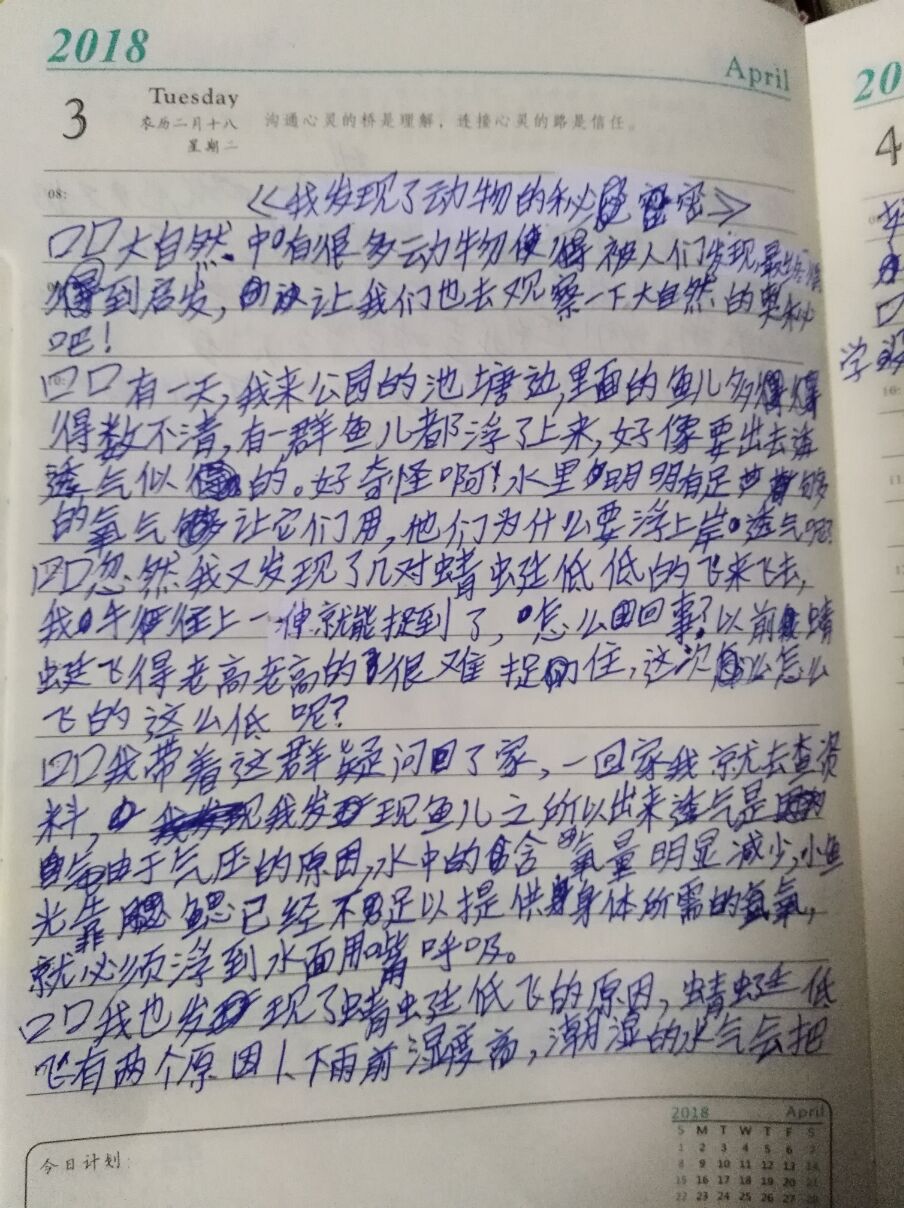 2018
April
3
Tuesday
农历二月十八
星期二
沟通心灵的桥是理解，连接心灵的路是信任。
20
4
08:
《我发现了动物的秘密》
口口大自然中有很多动物使得被人们发现最
得到启发，让我们也去观察一下大自然的奥秘
吧！
口口有一天，我来公园的池塘边，里面的鱼儿多
得数不清，有一群鱼儿都浮了上来，好像要出去
透气似的。好奇怪啊！水里明明有足够
的氧气让它们用，他们为什么要浮上岸透气呢？
口口忽然我又发现了几对蜻蜓低低的飞来飞去，
我手往上一伸就能捉到了，怎么回事？以前蜻
蜓飞得老高老高的很难捉住，这次怎么
飞的这么低呢？
口口我带着这群疑问回了家，一回家我就去查资
料，我发现鱼儿之所以出来透气是
由于气压的原因，水中的含氧量明显减少，小鱼
光靠鳃已经不足以提供身体所需的氧，
就必须浮到水面用嘴呼吸。
口口我也发现了蜻蜓低飞的原因，蜻蜓低
飞有两个原因1、下雨前湿度高，潮湿的水气会把
今日计划:
2018 April
S M T W T F S
1 2 3 4 5 6 7
8 9 10 11 12 13 14
15 16 17 18 19 20 21
22 23 24 25 26 27 28